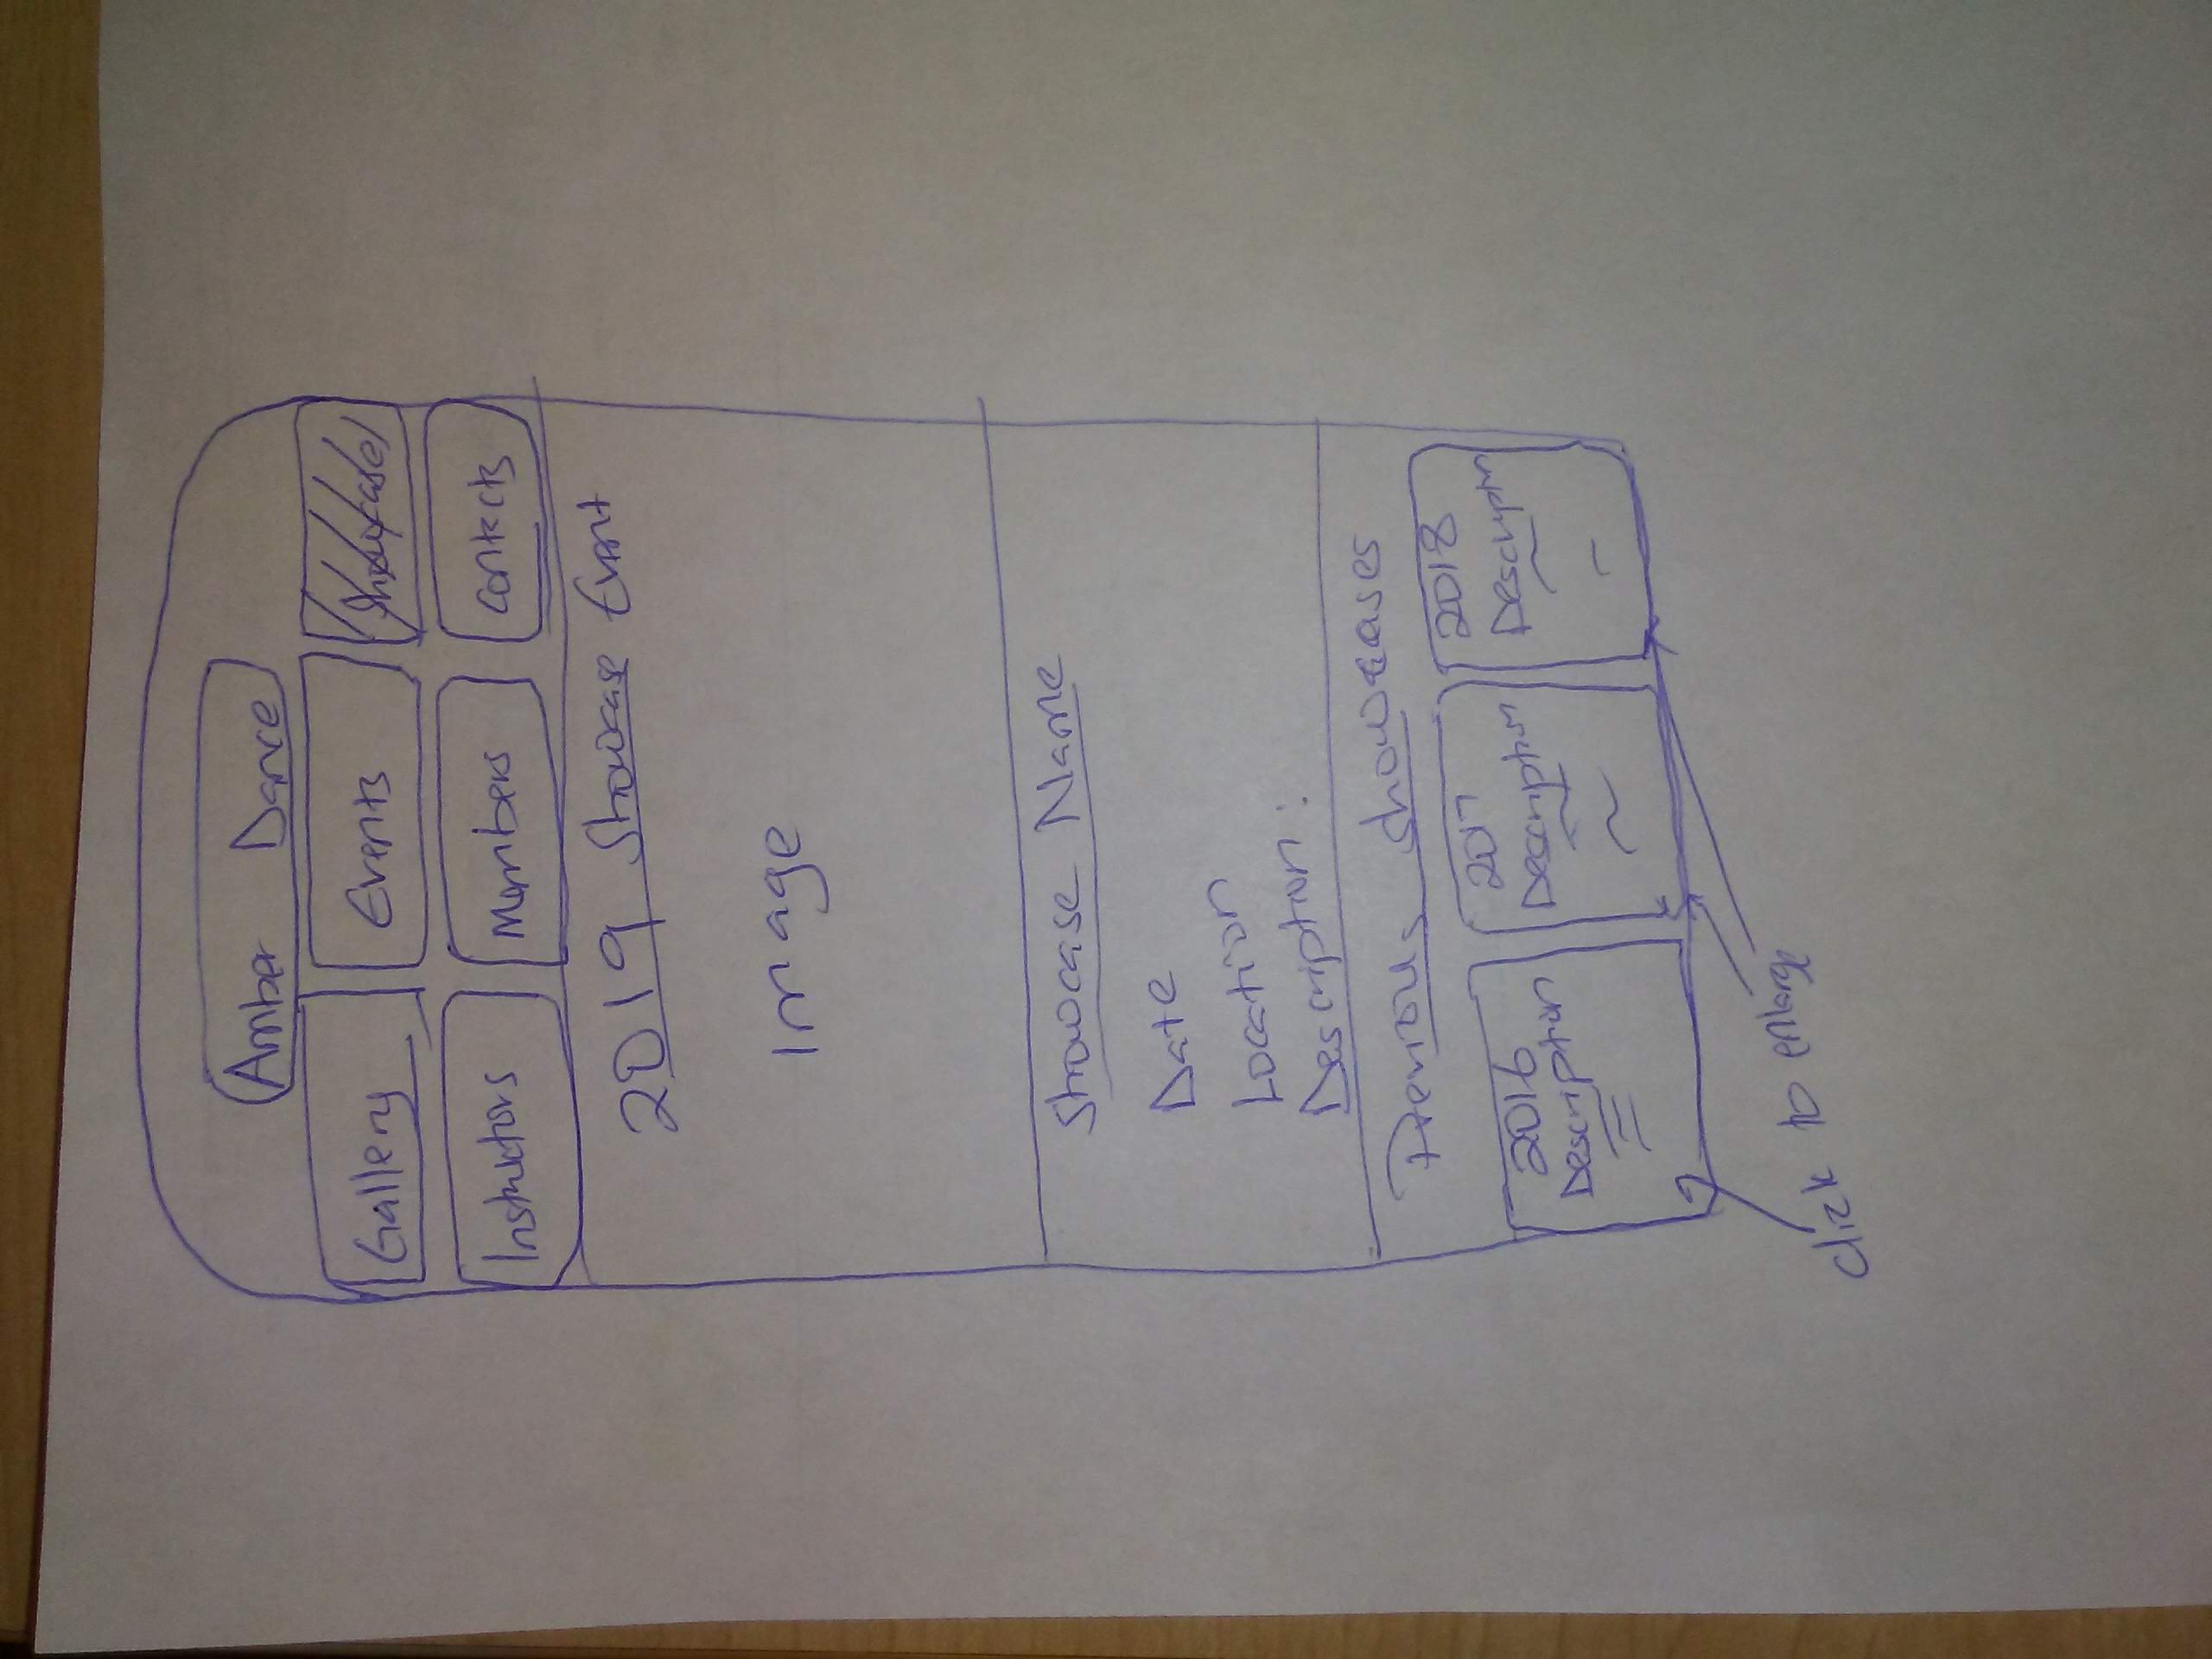 Amber Dance
Gallery Events Showcase
Instructors Members Contacts
2019 Showcase Event
Image
Showcase Name
Date
Location
Description:
Previous Showcases
2016 2017 2018
Description Description Description
click to enlarge